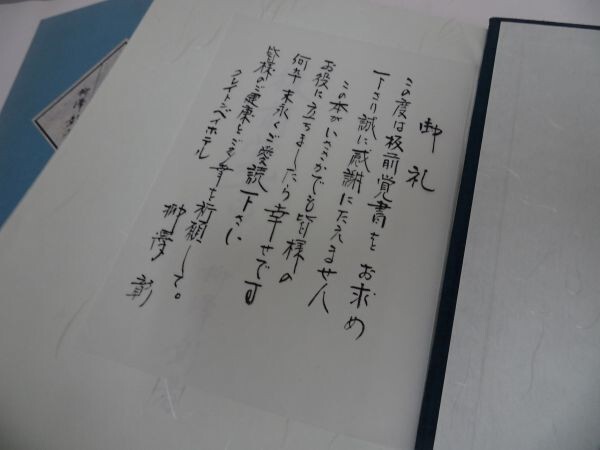 御礼
この度は板前覚書をお求め
下さり誠に感謝にたえません
この本がいささかでも皆様の
お役に立ちましたら幸せです
何卒末永くご愛読下さい
皆様のご健康とご多幸を祈願して。
グレイトンベイホテル
柳澤彰